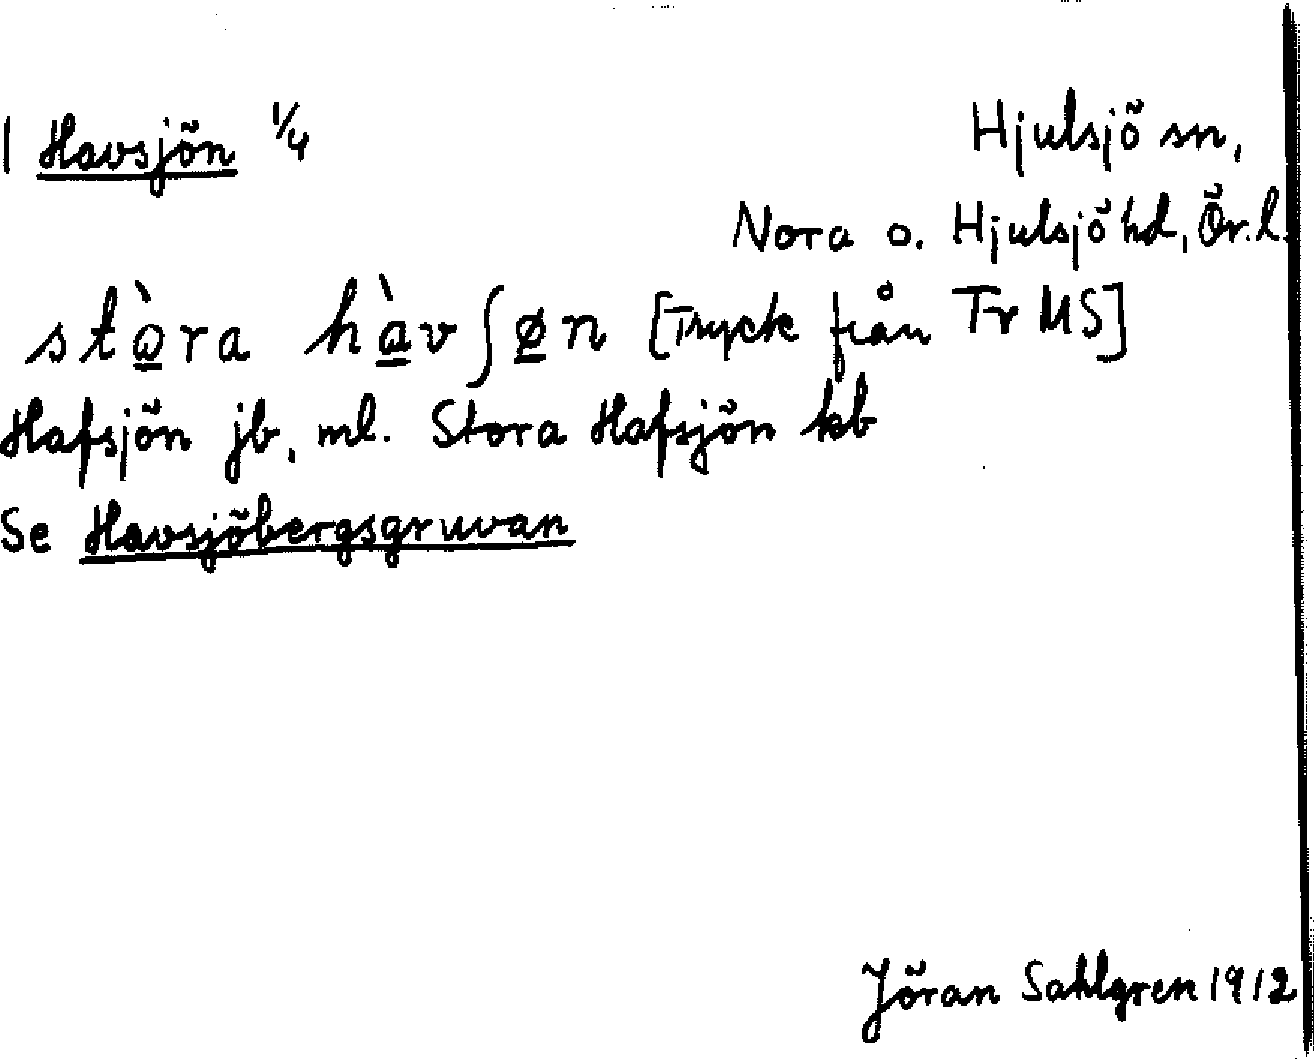 1 Havsjön 1/4
Hjulsjö sn,
Nora o. Hjulsjö hd, Ör.l.
stò̱ra hà̱vʃø̱n [Tryck från Tr MS]
Hafsjön jb, ml. Stora Hafsjön kb
Se Havsjöbergsgruvan
Jöran Sahlgren 1912